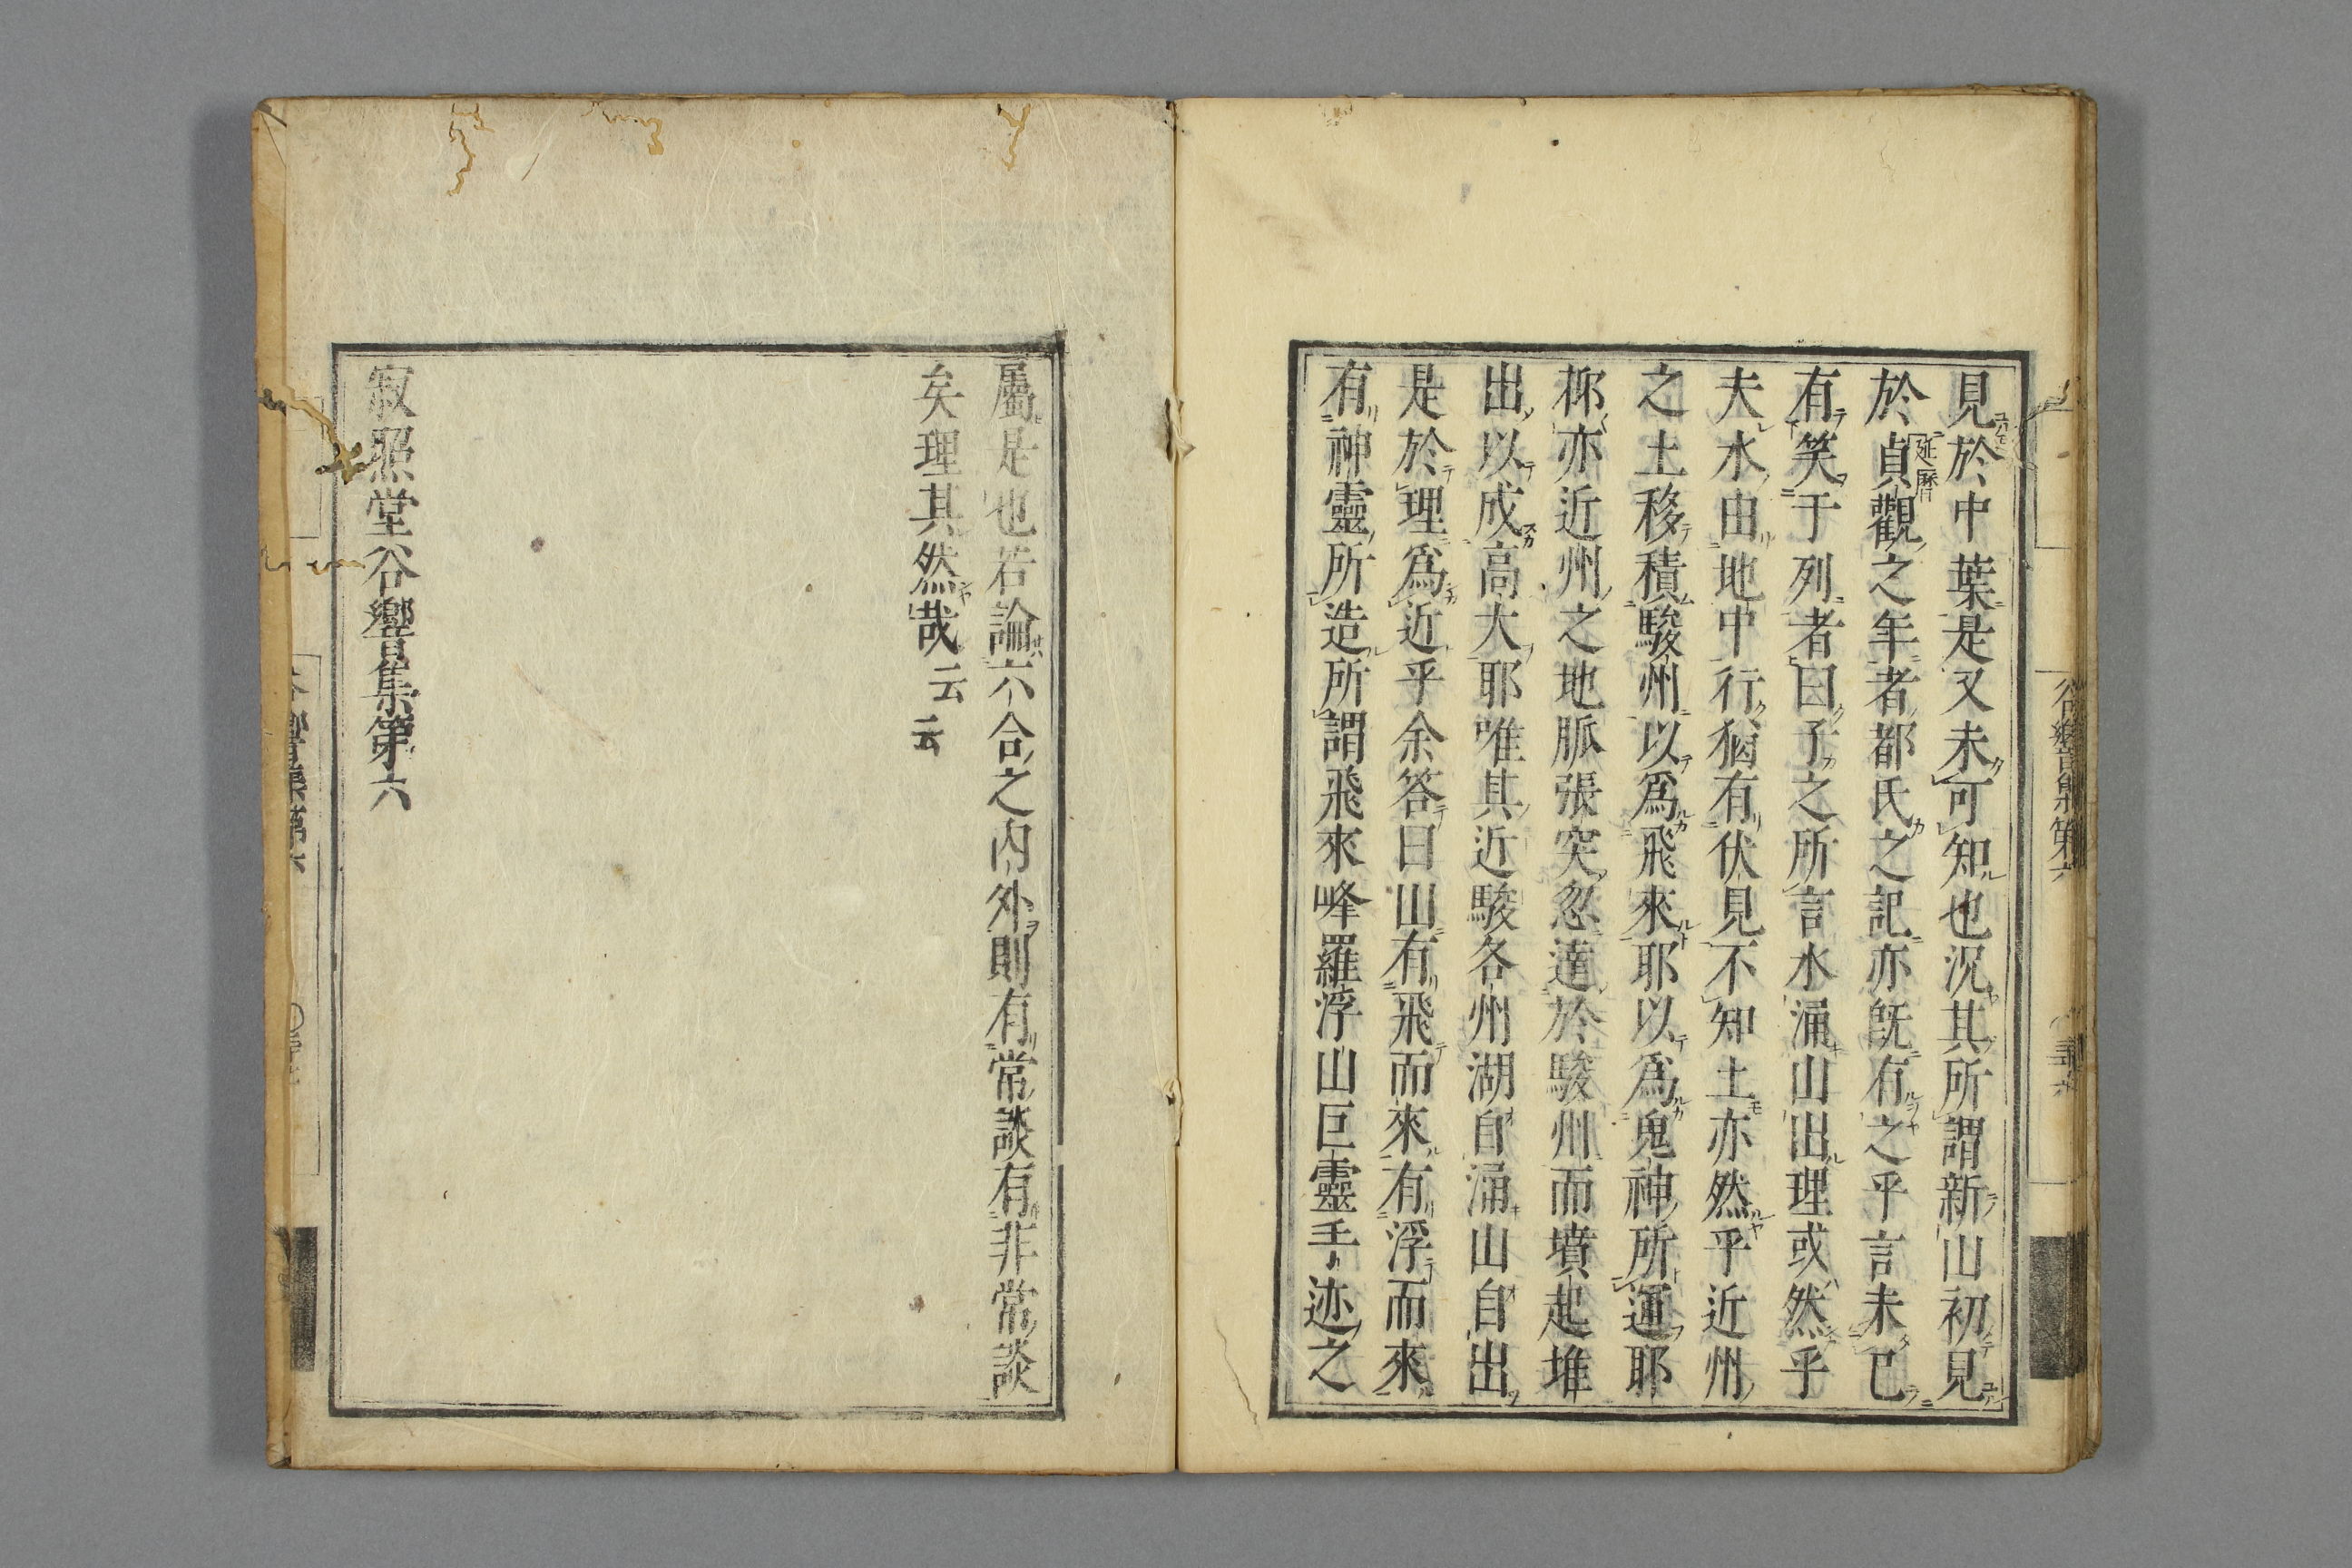 見於中葉是又未可知也況其所謂新山初見
於貞觀之年者都氏之記亦既有之乎言未已
延曆
有笑于列者曰子之所言水涌山出理或然乎
夫水由地中行猶有伏見不知土亦然乎近州
之土移積駿州以爲飛來耶以爲鬼神所運耶
抑亦近州之地脈張突忽達於駿州而墳起堆
出以成高大耶唯其近駿各州湖自涌山自出
是於理爲近乎余答曰山有飛而來有浮而來
有神靈所造所謂飛來峰羅浮山巨靈手迹之
屬是也若論六合之内外則有常談有非常談
矣理其然哉云云
寂照堂谷響集第六